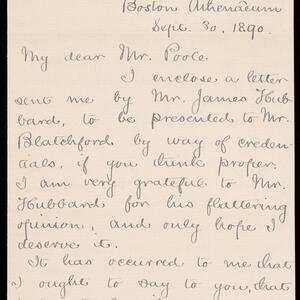 Boston Athenæum
Sept. 30, 1890.
My dear Mr. Poole
I enclose a letter
sent me by Mr. James Hub-
bard, to be presented to Mr.
Blatchford by way of creden-
tials, if you think proper.
I am very grateful to Mr.
Hubbard for his flattering
opinion, and only hope I
deserve it.
It has occurred to me that
I ought to say to you, that